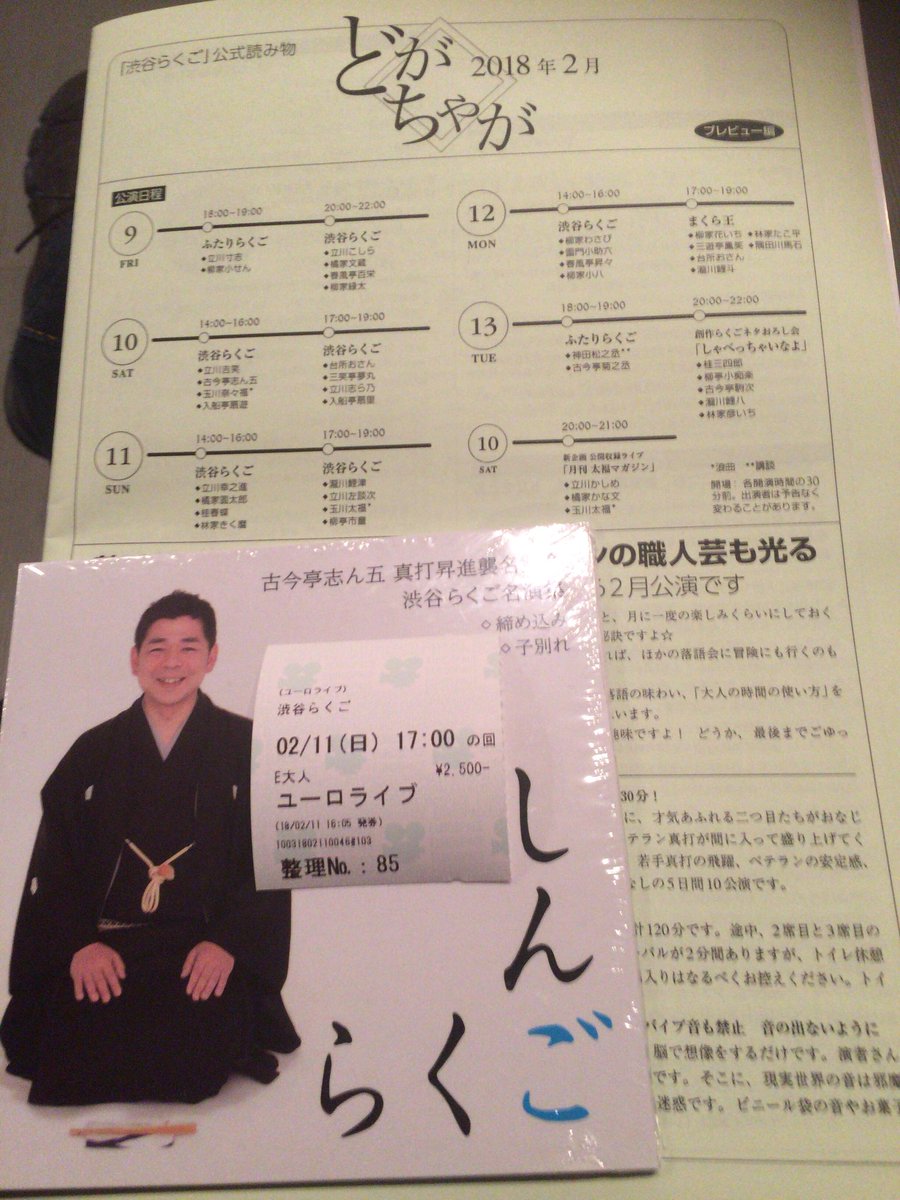 「渋谷らくご」公式読み物
どがちゃが
2018年2月
プレビュー編
公演日程
9
FRI
18:00~19:00
ふたりらくご
◆立川寸志
◆柳家小せん
20:00~22:00
渋谷らくご
◆立川こしら
◆橘家文蔵
◆春風亭百栄
◆柳家緑太
10
SAT
14:00~16:00
渋谷らくご
◆立川吉笑
◆古今亭志ん五
◆玉川奈々福*
◆入船亭扇遊
17:00~19:00
渋谷らくご
◆台所おさん
◆三笑亭夢丸
◆立川志ら乃
◆入船亭扇里
11
SUN
14:00~16:00
渋谷らくご
◆立川幸之進
◆橘家圓太郎
◆桂春蝶
◆林家きく麿
17:00~19:00
渋谷らくご
◆瀧川鯉津
◆立川左談次
◆玉川太福*
◆柳亭市童
12
MON
14:00~16:00
渋谷らくご
◆柳家わさび
◆雷門小助六
◆春風亭昇々
◆柳家小八
17:00~19:00
まくら王
◆柳家花いち ◆林家たこ平
◆三遊亭鳳笑 ◆隅田川馬石
◆台所おさん
◆瀧川鯉斗
13
TUE
18:00~19:00
ふたりらくご
◆神田松之丞**
◆古今亭菊之丞
20:00~22:00
創作らくごネタおろし会
「しゃべっちゃいなよ」
◆桂三四郎
◆柳亭小痴楽
◆古今亭駒次
◆瀧川鯉八
◆林家彦いち
10
SAT
20:00~21:00
新企画 公開収録ライブ
「月刊 太福マガジン」
◆立川かしめ
◆橘家かな文
◆玉川太福*
*浪曲 **講談
開場:各開演時間の30
分前。出演者は予告なく
変わることがあります。
ンの職人芸も光る
2月公演です
と、月に一度の楽しみくらいにしておく
秘訣ですよ☆
れば、ほかの落語会に冒険にも行くのも
落語の味わい、「大人の時間の使い方」を
います。
趣味ですよ! どうか、最後までごゆっ
30分!
に、才気あふれる二つ目たちがおなじ
テラン真打が間に入って盛り上げてく
若手真打の飛躍、ベテランの安定感、
なしの5日間10公演です。
計120分です。途中、2席目と3席目の
ーバルが2分間ありますが、トイレ休憩
入りはなるべくお控えください。トイ
バイブ音も禁止 音の出ないように
脳で想像をするだけです。演者さん
です。そこに、現実世界の音は邪魔
迷惑です。ビニール袋の音やお菓子
古今亭志ん五 真打昇進襲名
渋谷らくご名演集
◇締め込み
◇子別れ
(ユーロライブ)
渋谷らくご
02/11(日) 17:00 の回
E大人 ¥2,500-
ユーロライブ
(18/02/11 16:05 発券)
10031802110046#103
整理No.: 85
しんご
らくご